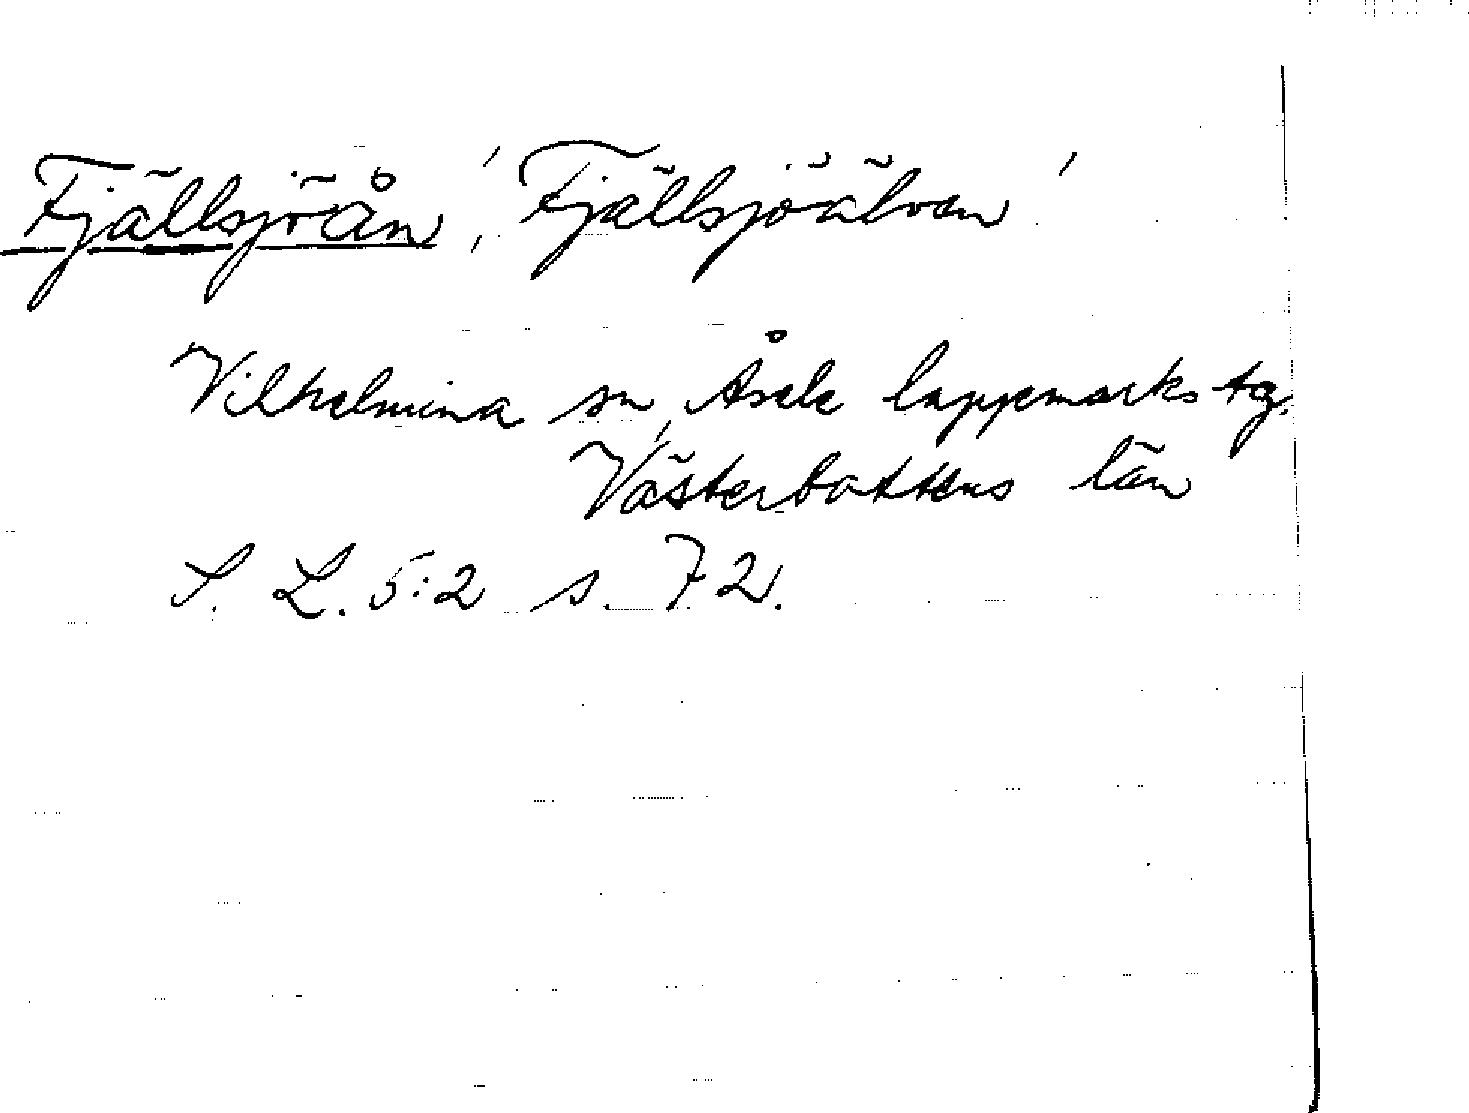 Fjällsjöån, 'Fjällsjöälven'
Vilhelmina sn, Åsele lappmarks tg.
Västerbottens län
S. L. 5:2 s. 72.